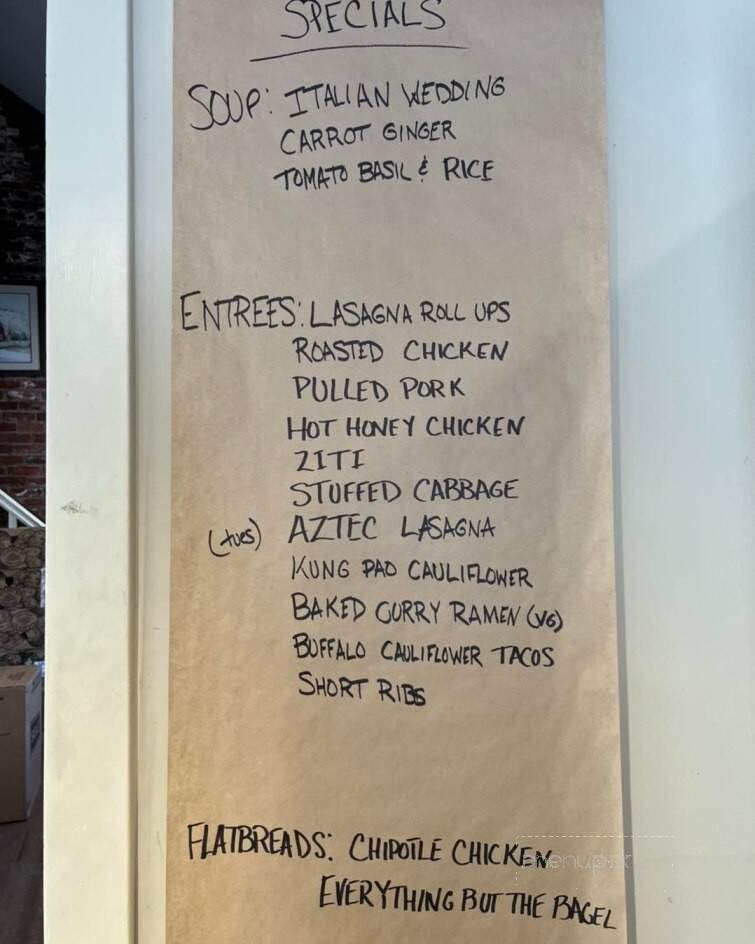 SPECIALS
SOUP: ITALIAN WEDDING
CARROT GINGER
TOMATO BASIL & RICE
ENTREES: LASAGNA ROLL UPS
ROASTED CHICKEN
PULLED PORK
HOT HONEY CHICKEN
ZITI
STUFFED CABBAGE
(tues) AZTEC LASAGNA
KUNG PAO CAULIFLOWER
BAKED CURRY RAMEN (VG)
BUFFALO CAULIFLOWER TACOS
SHORT RIBS
FLATBREADS: CHIPOTLE CHICKEN
EVERYTHING BUT THE BAGEL